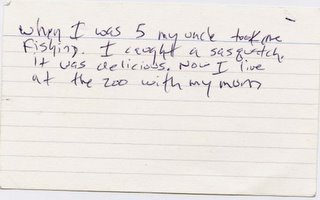 When I was 5 my uncle took me
fishing. I caught a sasquatch.
It was delicious. Now I live
at the zoo with my mom